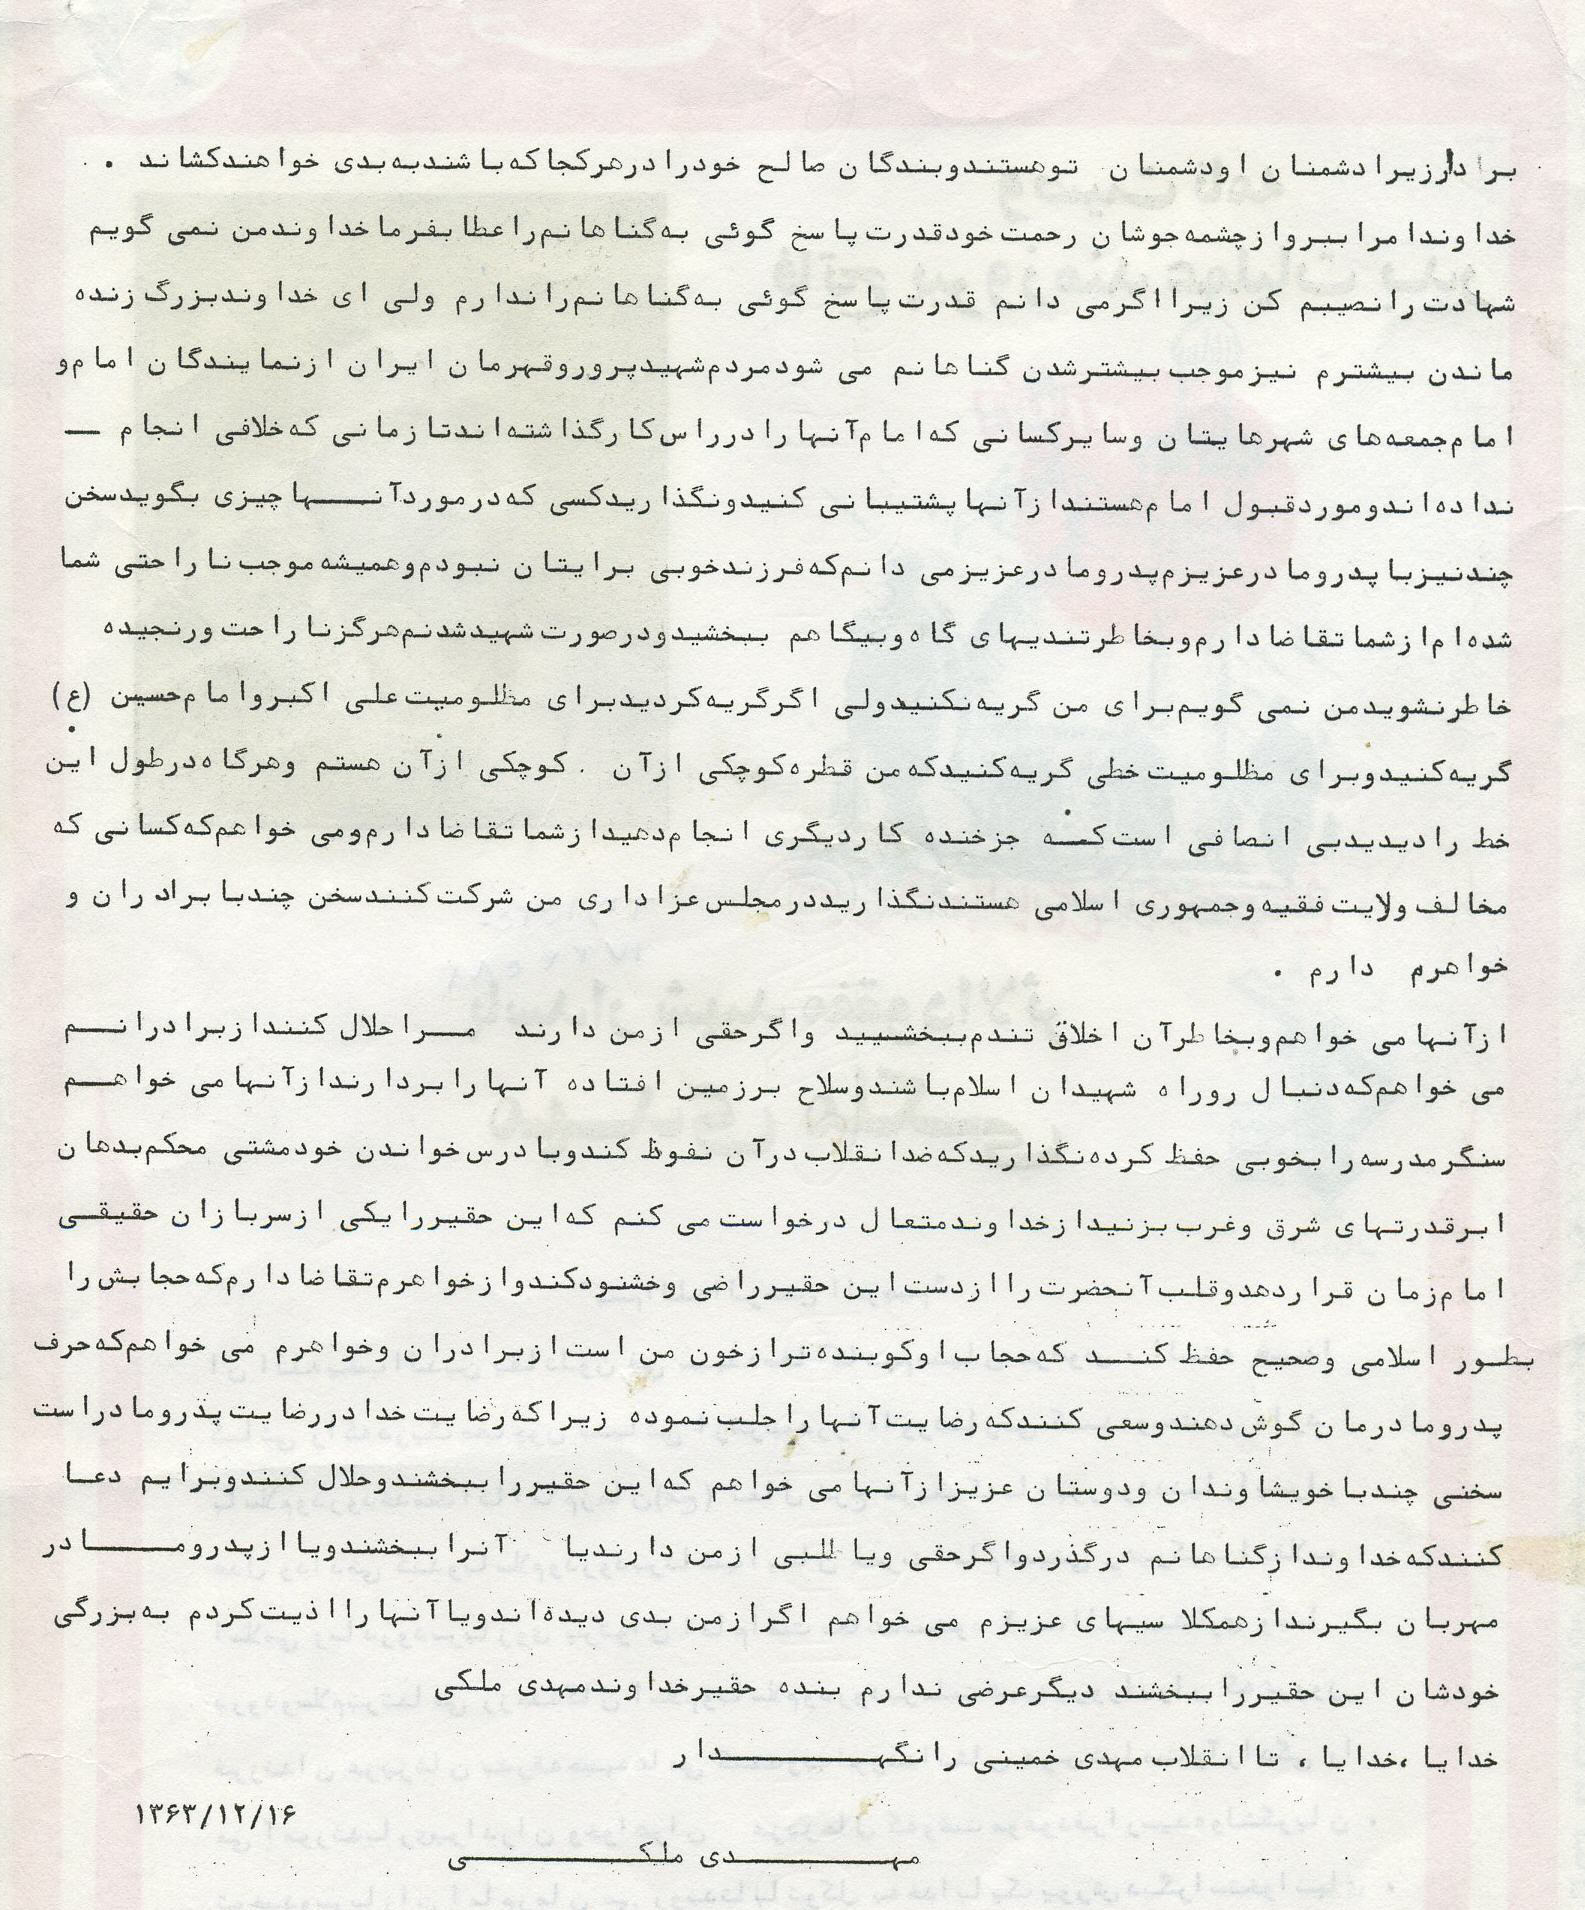 بردار زیرا دشمنان او دشمنان تو هستند و بندگان صالح خود را در هر کجا که باشند به بدی خواهند کشاند .
خداوندا مرا ببر و از چشمه جوشان رحمت خود قدرت پاسخ گوئی به گناهانم را عطا بفرما خداوند من نمی گویم
شهادت را نصیبم کن زیرا اگر می دانم قدرت پاسخ گوئی به گناهانم را ندارم ولی ای خداوند بزرگ زنده
ماندن بیشترم نیز موجب بیشتر شدن گناهانم می شود مردم شهید پرور و قهرمان ایران از نمایندگان امام و
امام جمعه های شهرهایتان و سایر کسانی که امام آنها را در راس کار گذاشته اند تا زمانی که خلافی انجام ــ
نداده اند و مورد قبول امام هستند از آنها پشتیبانی کنید و نگذارید کسی که در مورد آنـــها چیزی بگوید سخن
چند نیز با پدر و مادر عزیزم پدر و مادر عزیز می دانم که فرزند خوبی برایتان نبودم و همیشه موجب ناراحتی شما
شده ام از شما تقاضا دارم و بخاطر تندیهای گاه و بیگاهم ببخشید و در صورت شهید شدنم هرگز ناراحت و رنجیده
خاطر نشوید من نمی گویم برای من گریه نکنید ولی اگر گریه کردید برای مظلومیت علی اکبر و امام حسین (ع)
گریه کنید و برای مظلومیت خطی گریه کنید که من قطره کوچکی از آن . کوچکی از آن هستم و هر گاه در طول این
خط را دیدید بی انصافی است کـه جز خنده کار دیگری انجام دهید از شما تقاضا دارم و می خواهم که کسانی که
مخالف ولایت فقیه و جمهوری اسلامی هستند نگذارید در مجلس عزاداری من شرکت کنند سخن چند با برادران و
خواهرم دارم .
از آنها می خواهم و بخاطر آن اخلاق تندم ببخشیید و اگر حقی از من دارند مــرا حلال کنند از برادرانــم
می خواهم که دنبال رو راه شهیدان اسلام باشند و سلاح بر زمین افتاده آنها را بردارند از آنها می خواهــم
سنگر مدرسه را بخوبی حفظ کرده نگذارید که ضد انقلاب در آن نفوظ کند و با درس خواندن خود مشتی محکم بدهان
ابر قدرتهای شرق و غرب بزنید از خداوند متعال درخواست می کنم که این حقیر را یکی از سربازان حقیقــی
امام زمان قرار دهد و قلب آنحضرت را از دست این حقیر راضی و خشنود کند و از خواهرم تقاضا دارم که حجابش را
بطــور اسلامی و صحیح حفظ کنــد که حجاب او کوبنده تر از خون من است از برادران و خواهرم می خواهم که حرف
پدر و مادرمان گوش دهند و سعی کنند که رضایت آنها را جلب نموده زیرا که رضایت خدا در رضایت پدر و مادر است
سخنی چند با خویشاوندان و دوستان عزیز از آنها می خواهم که این حقیر را ببخشند و حلال کنند و برایم دعــا
کنند که خداوند از گناهانم درگذرد و اگر حقی و یا طلبی از من دارند یا آنرا ببخشند و یا از پدر و مـــادر
مهربان بگیرند از همکلاسیهای عزیزم می خواهم اگر از من بدی دیده اند و یا آنها را اذیت کردم به بزرگی
خودشان این حقیر را ببخشند دیگر عرضی ندارم بنده حقیر خداوند مهدی ملکی
خدایا ،خدایا ، تا انقلاب مهدی خمینی را نگهـــــــــدار
۱۳۶۳/۱۲/۱۶
مهـــــــدی ملکـــــــی